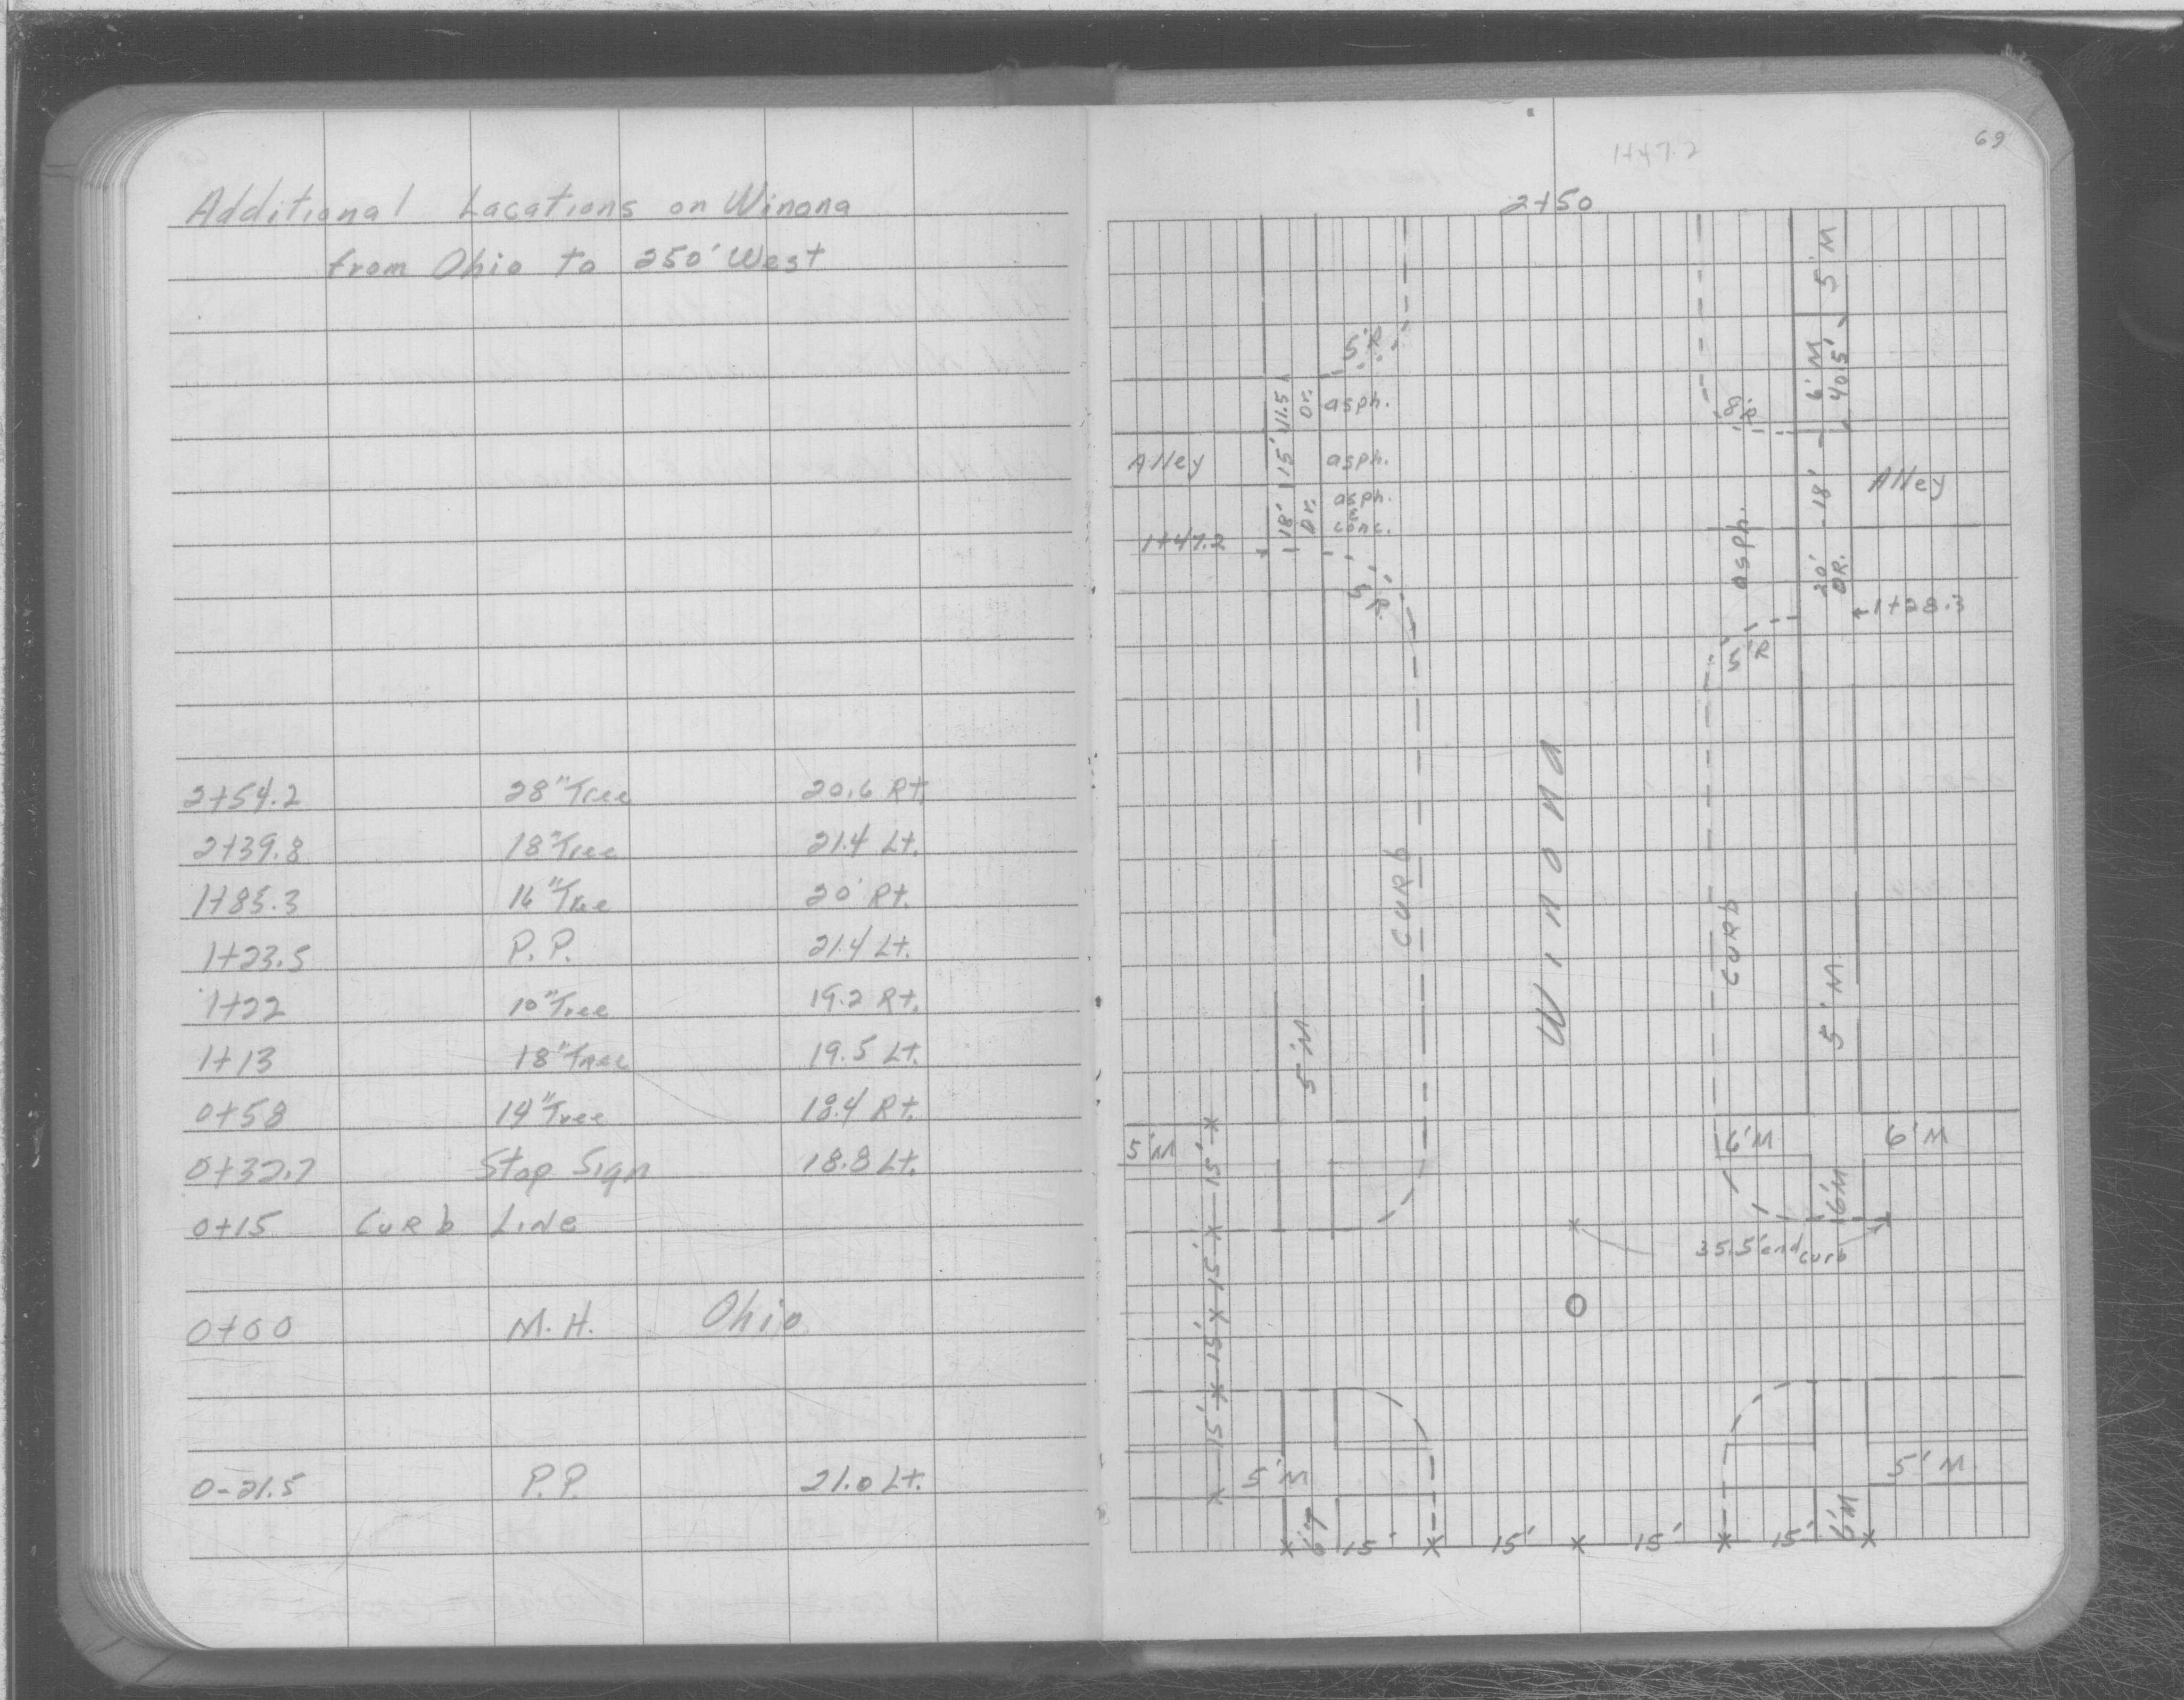 Additional Locations on Winona
from Ohio to 250' West
2+54.2 28" Tree 20.6 Rt.
2+39.8 18" Tree 21.4 Lt.
1+85.3 16" Tree 20' Rt.
1+23.5 P.P. 21.4 Lt.
1+22 10" Tree 19.2 Rt.
1+13 18" Tree 19.5 Lt.
0+58 14" Tree 18.4 Rt.
0+32.7 Stop Sign 18.8 Lt.
0+15 Curb Line
0+00 M.H. Ohio
0-21.5 P.P. 21.0 Lt.
69
1+47.2
2+50
5' M
5' R
6' M
40.5'
11.5 Dr. asph.
8' R
Alley 15' asph.
18' Alley
18' Dr. asph. & conc.
asph.
1+47.2
20' DR.
1+28.3
5' R
5' R
Winona
CURb
CURb
5' M
5' M
5' M 15'
6' M 6' M
6' M
35.5' end curb
15'
15'
15'
5' M 5' M
6' 15' 15' 15' 15' 6' M